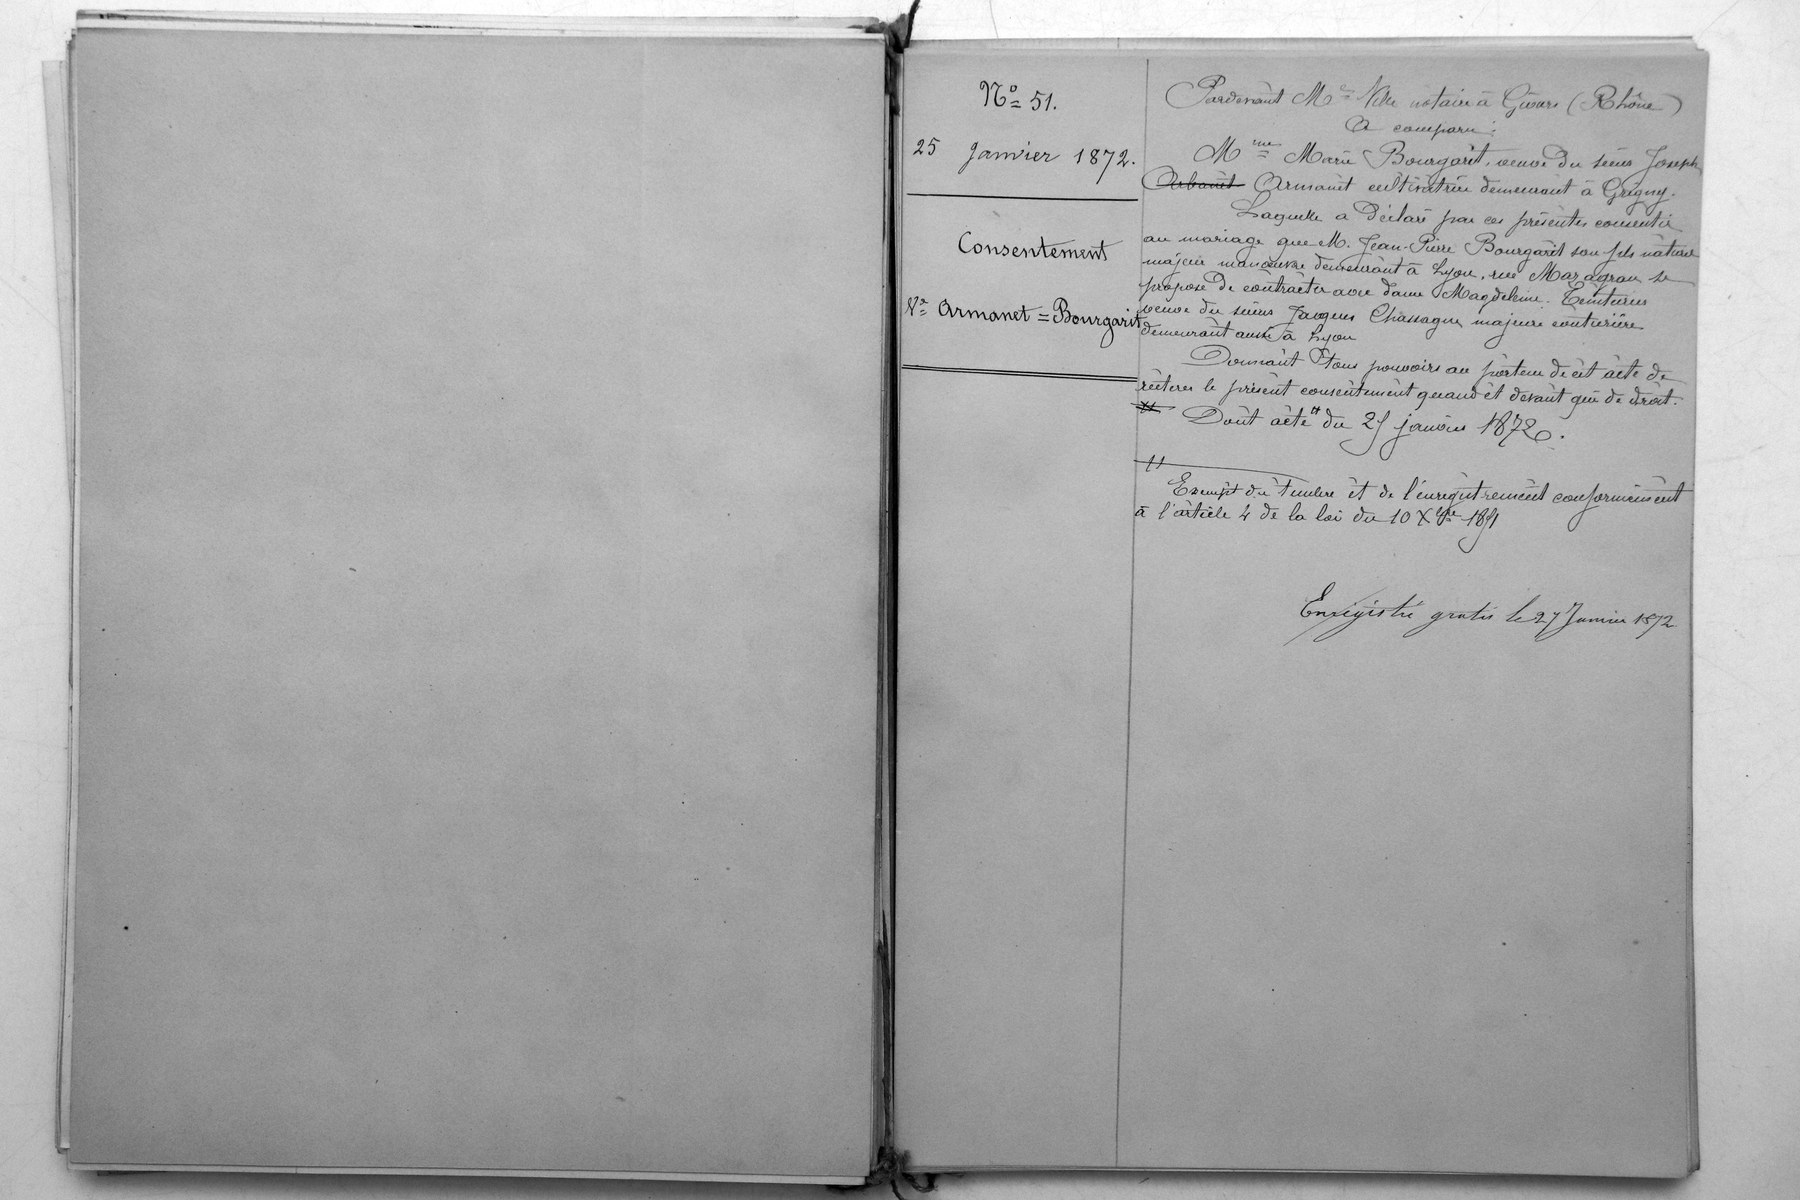 N° 51.
25 Janvier 1872.
Consentement
Vve Armanet = Bourgarit
Pardevant Me notaire à Givors (Rhône)
A comparu :
Mme Marie Bourgarit, veuve du sieur Joseph
Armanet cultivatrice demeurant à Grigny.
Laquelle a déclaré par ces présentes consentir
au mariage que M. Jean-Pierre Bourgarit son fils naturel
majeur manœuvre demeurant à Lyon, rue Mazagran se
propose de contracter avec dame Magdeleine Teinturier
veuve du sieur Jacques Chassagne, majeure couturière
demeurant aussi à Lyon
Donnant tous pouvoirs au porteur de cet acte de
réitérer le présent consentement quand et devant qui de droit.
Dont acte du 25 janvier 1872.
Exempt du timbre et de l'enregistrement conformément
à l'article 4 de la loi du 10 Xbre 1851
Enregistré gratis le 27 Janvier 1872